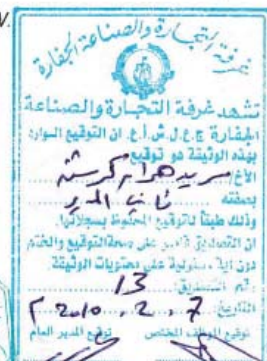 غرفة التجارة والصناعة الجفارة
تشهد غرفة التجارة والصناعة
الجفارة ج.ع.ل.ش.أ.ع. ان التوقيع الوارد
بهذه الوثيقة هو توقيع
الأخ
بصفته نائب المدير
وذلك طبقا للتوقيع المحفوظ بسجلاتها.
ان التصديق قاصر على صحة التوقيع والختم
دون اية مسئولية على محتويات الوثيقة.
رقم التصديق 13
التاريخ 7 . 2 . 2010 م
توقيع الموظف المختص توقيع المدير العام